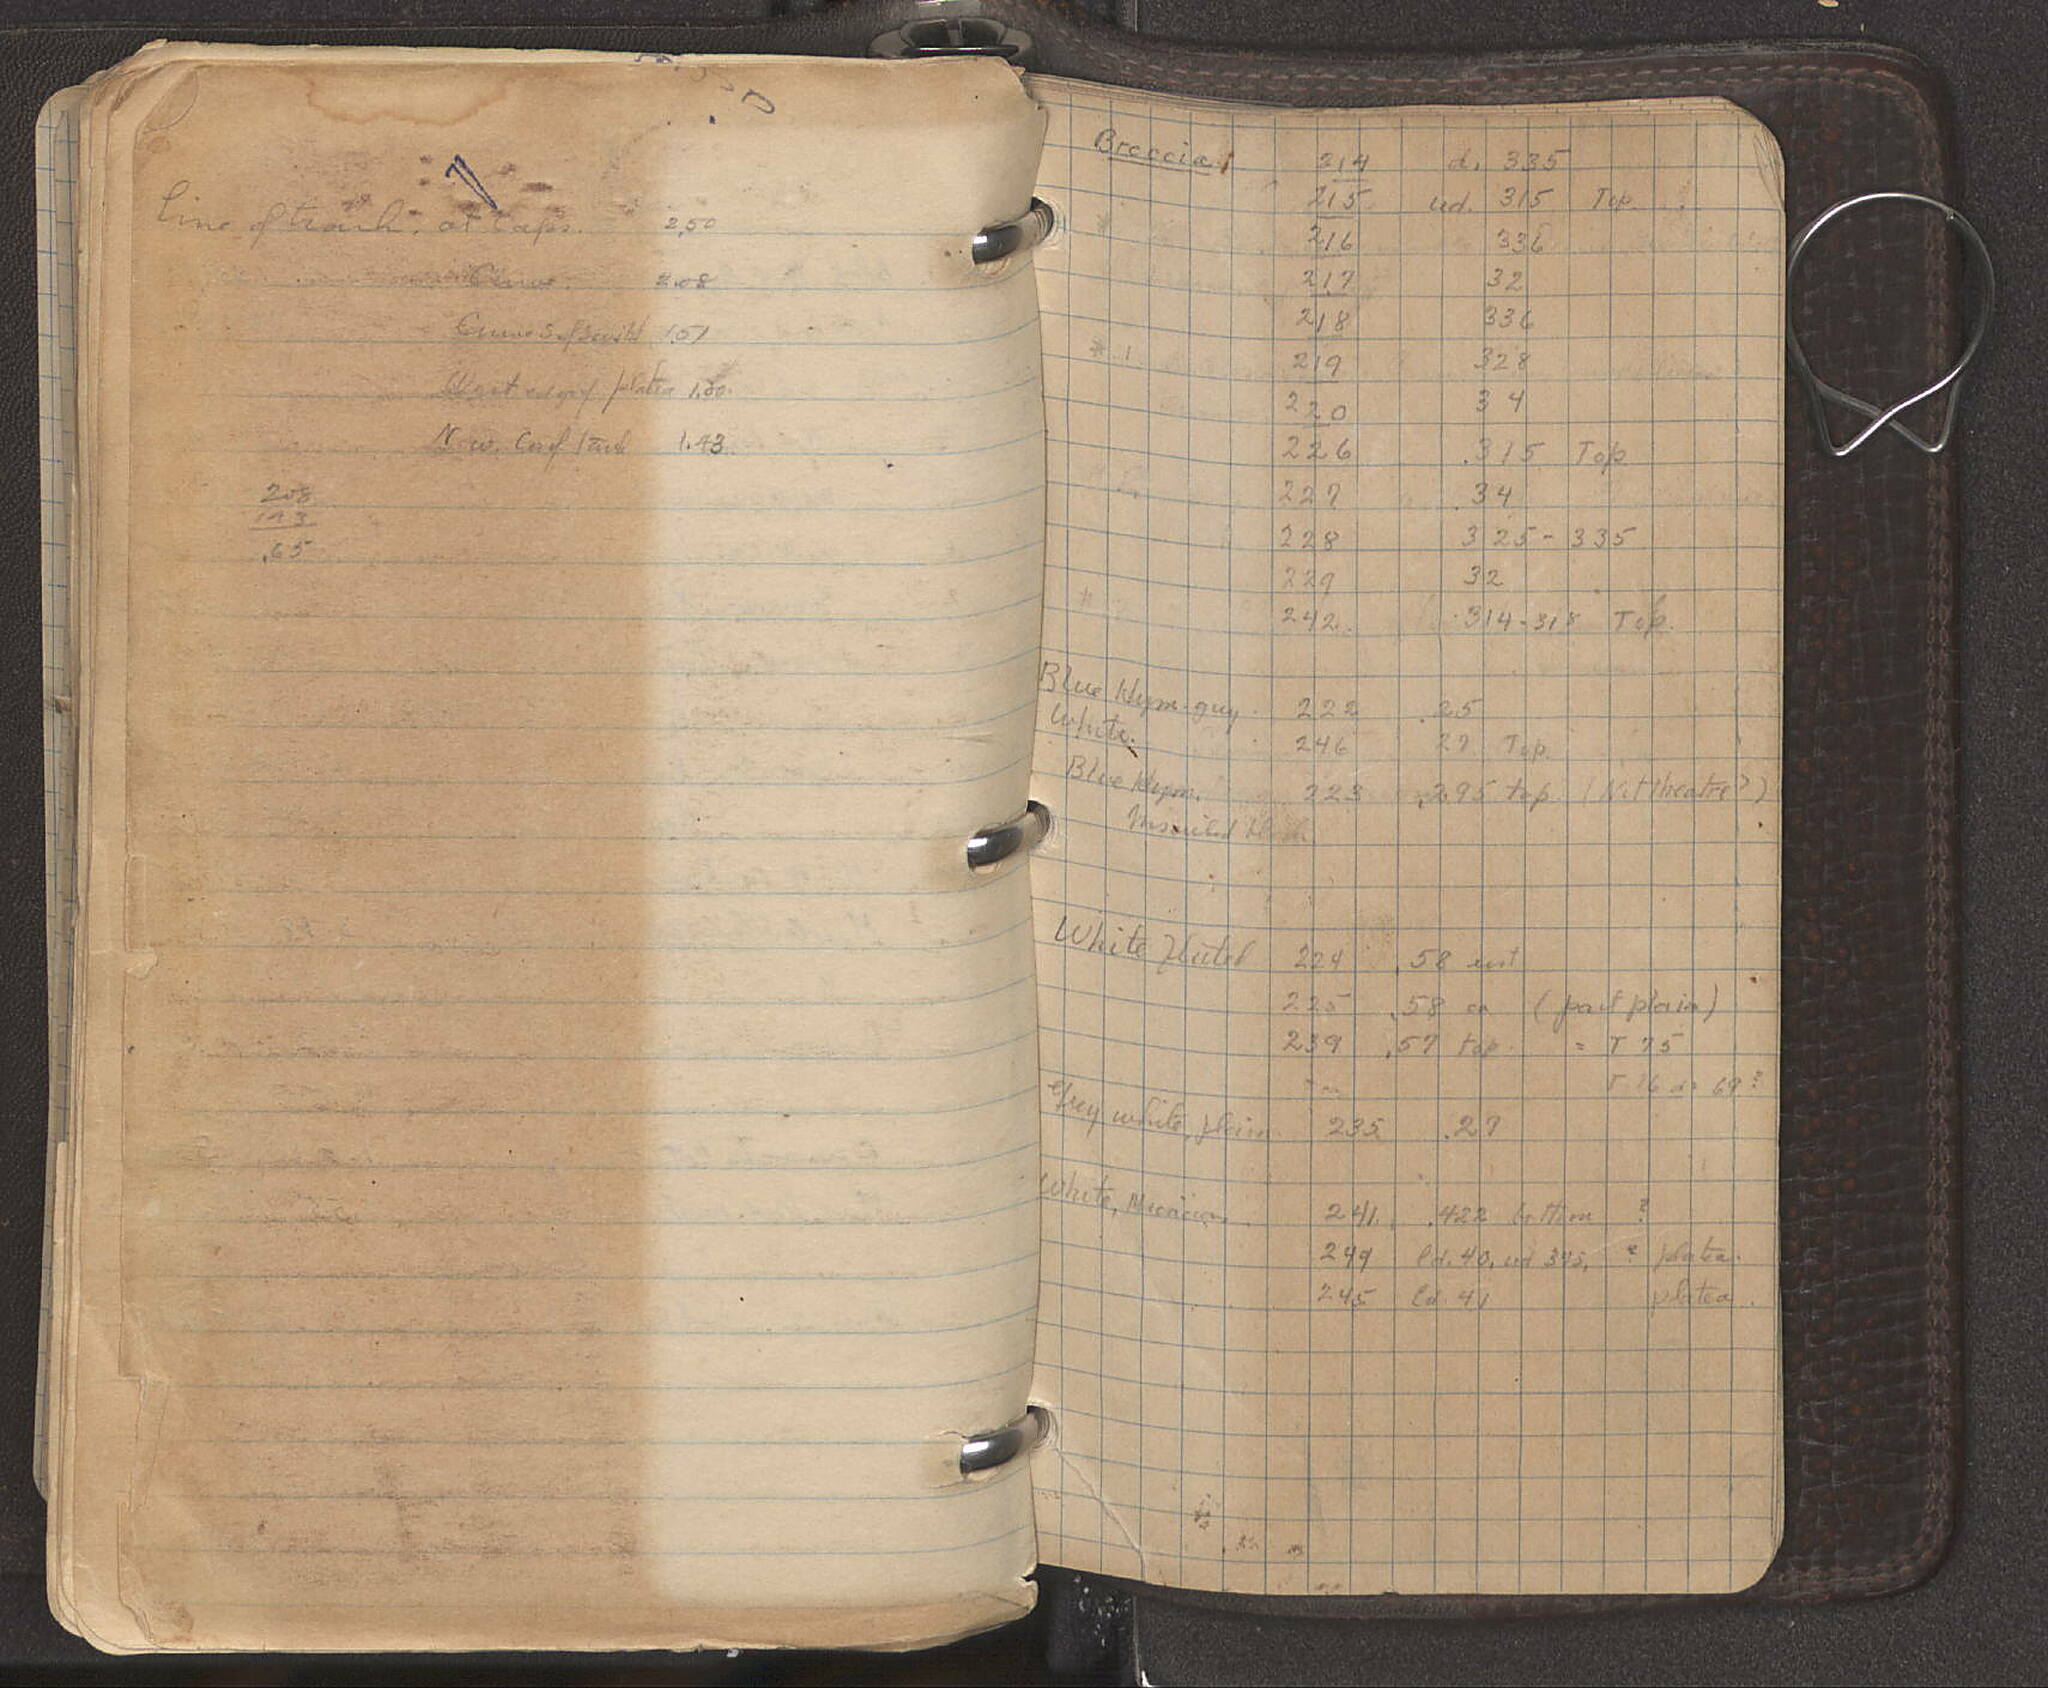 Line of track, at taps. 2,50
Curve. 2.08
Curve S. of 1.51
West edge of platea 1.80.
N.W. Cor of track 1.43
208
143
.65
Breccia 214 d. 335
215 ud. 315 Top.
216 336
217 32
218 336
219 328
220 34
226 .315 Top
227 .34
228 325-335
229 32
242. .314-318 Top.
Blue Hym. grey 222 .25
White. 246 27 Top.
Blue Hym. 223 .295 top (Not theatre?)
White fluted 224 .58 est
225 .58 ca (part plain)
239 .57 top. = T 75
T 16 d. 69?
Grey white, plain 235 .27
White, 241. .422 bottom ?
249 ld. 40, ud 345, ? platea.
245 ld 41 platea.